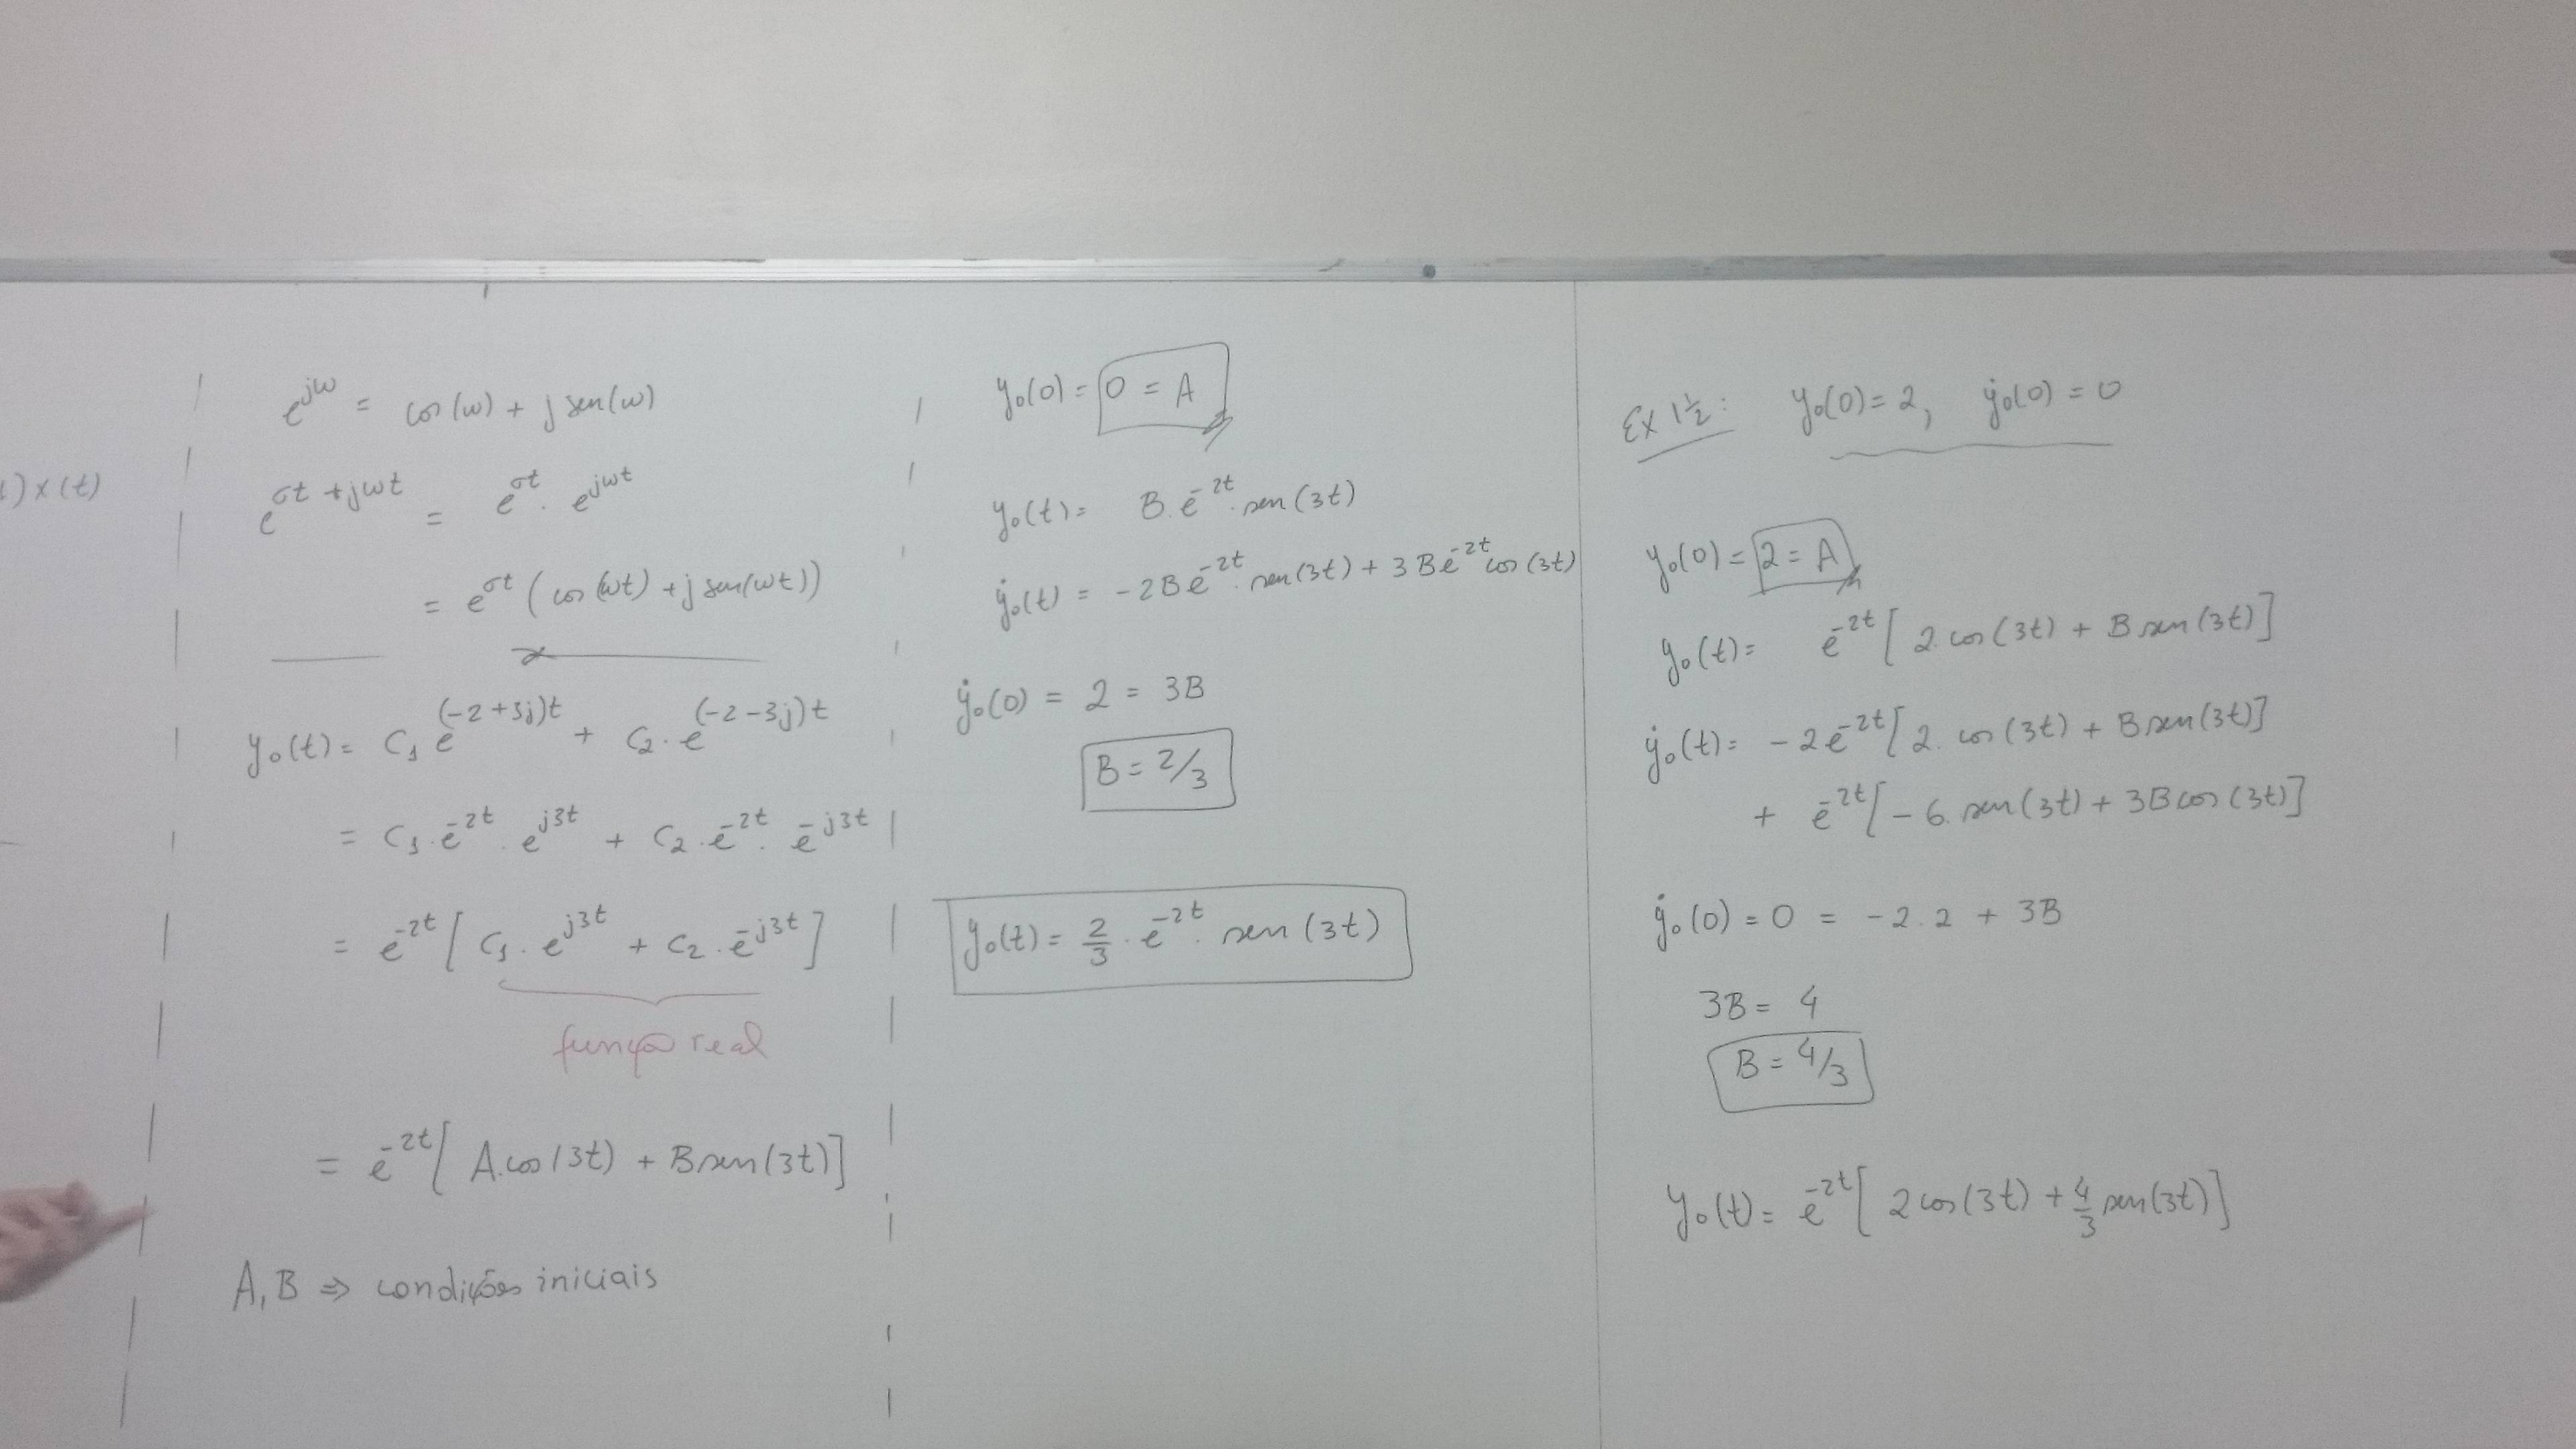 ) x(t)
e^{jω} = cos(ω) + j sen(ω)
e^{σt + jωt} = e^{σt} . e^{jωt}
= e^{σt} ( cos(ωt) + j sen(ωt))
y₀(t) = C₁ e^{(-2+3j)t} + C₂ . e^{(-2-3j)t}
= C₁ . e^{-2t} . e^{j3t} + C₂ . e^{-2t} . e^{-j3t}
= e^{-2t} [ C₁ . e^{j3t} + C₂ . e^{-j3t} ]
função real
= e^{-2t} [ A.cos(3t) + B sen(3t)]
A, B ⇒ condições iniciais
y₀(0) = 0 = A
y₀(t) = B . e^{-2t} . sen(3t)
ẏ₀(t) = -2B e^{-2t} . sen(3t) + 3B e^{-2t} cos(3t)
ẏ₀(0) = 2 = 3B
B = 2/3
y₀(t) = 2/3 . e^{-2t} . sen(3t)
Ex 1½: y₀(0) = 2, ẏ₀(0) = 0
y₀(0) = 2 = A
y₀(t) = e^{-2t} [ 2.cos(3t) + B sen(3t)]
ẏ₀(t) = -2e^{-2t} [ 2. cos(3t) + B sen(3t)]
+ e^{-2t} [ -6. sen(3t) + 3B cos(3t)]
ẏ₀(0) = 0 = -2.2 + 3B
3B = 4
B = 4/3
y₀(t) = e^{-2t} [ 2 cos(3t) + 4/3 sen(3t)]